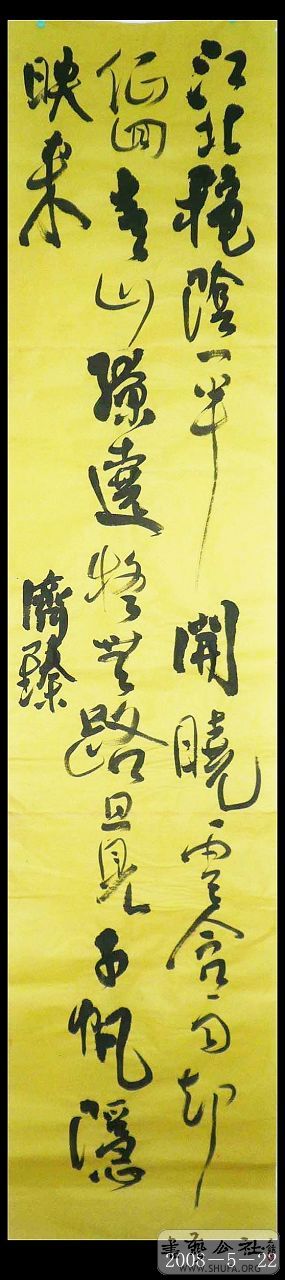 江北穐陰一半開曉雲含雨却
低回青山繚遶疑無路旦見千帆隱
映来
濟臻
書藝公社
WWW.SHUFA.ORG
2008-5-22